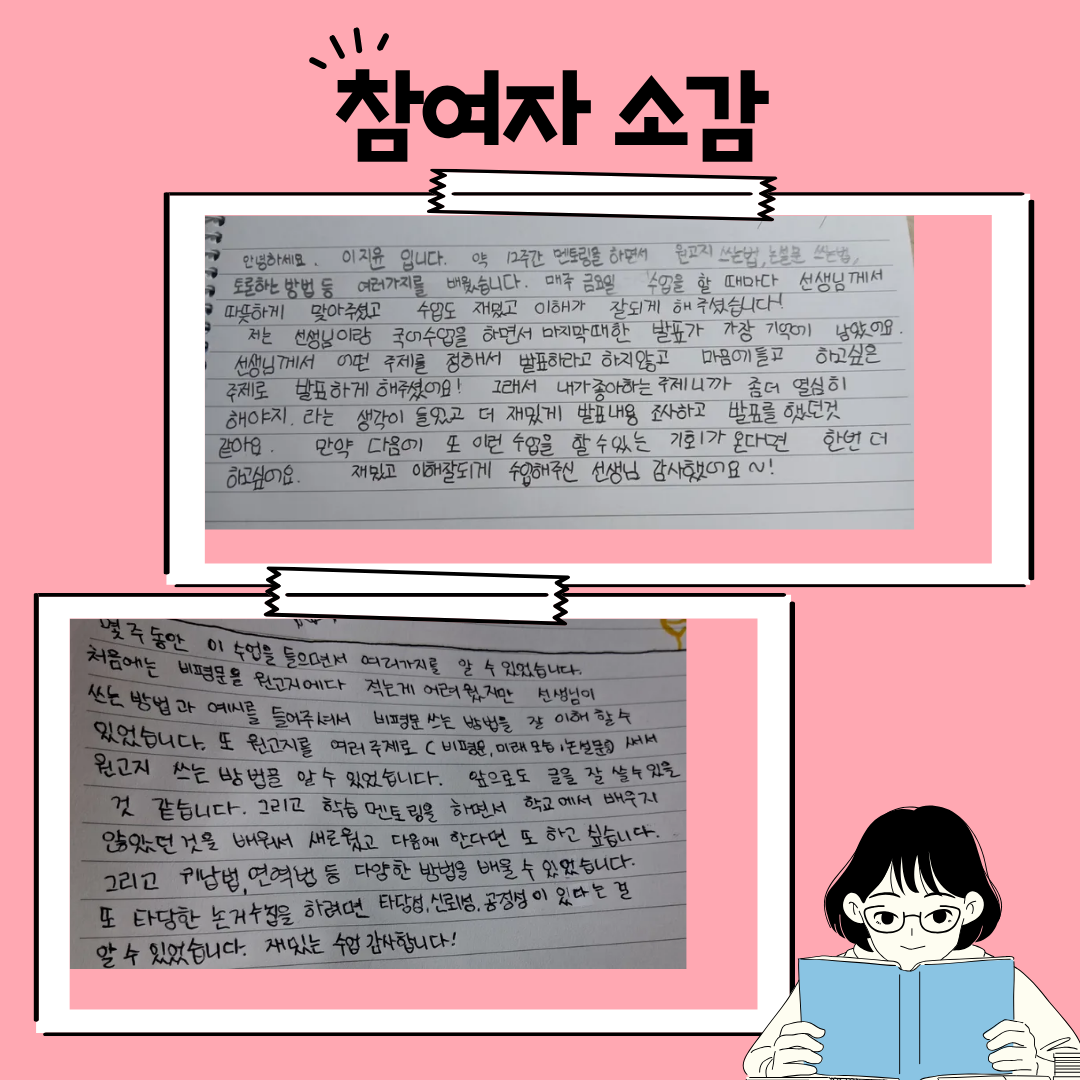 참여자 소감
안녕하세요. 이지윤 입니다. 약 12주간 멘토링을 하면서 원고지 쓰는법, 논설문 쓰는법,
토론하는 방법 등 여러가지를 배웠습니다. 매주 금요일 수업을 할 때마다 선생님께서
따뜻하게 맞아주셨고 수업도 재밌고 이해가 잘되게 해주셨습니다!
저는 선생님이랑 국어수업을 하면서 마지막때한 발표가 가장 기억에 남았어요.
선생님께서 어떤 주제를 정해서 발표하라고 하지않고 마음에들고 하고싶은
주제로 발표하게 해주셨어요! 그래서 내가좋아하는 주제니까 좀더 열심히
해야지. 라는 생각이 들었고 더 재밌게 발표내용 조사하고 발표를 했던것
같아요. 만약 다음에 또 이런 수업을 할 수 있는 기회가 온다면 한번 더
하고싶어요. 재밌고 이해잘되게 수업해주신 선생님 감사했어요~!
몇 주 동안 이 수업을 들으면서 여러가지를 알 수 있었습니다.
처음에는 비평문을 원고지에다 적는게 어려웠지만 선생님이
쓰는 방법과 예시를 들어주셔서 비평문 쓰는 방법을 잘 이해 할 수
있었습니다. 또 원고지를 여러 주제로 (비평문, 미래 모습, 논설문) 써서
원고지 쓰는 방법을 알 수 있었습니다. 앞으로도 글을 잘 쓸 수 있을
것 같습니다. 그리고 학습 멘토링을 하면서 학교에서 배우지
않았던 것을 배워서 새로웠고 다음에 한다면 또 하고 싶습니다.
그리고 귀납법, 연역법 등 다양한 방법을 배울 수 있었습니다.
또 타당한 논거수집을 하려면 타당성, 신뢰성, 공정성이 있다는 걸
알 수 있었습니다. 재밌는 수업 감사합니다!